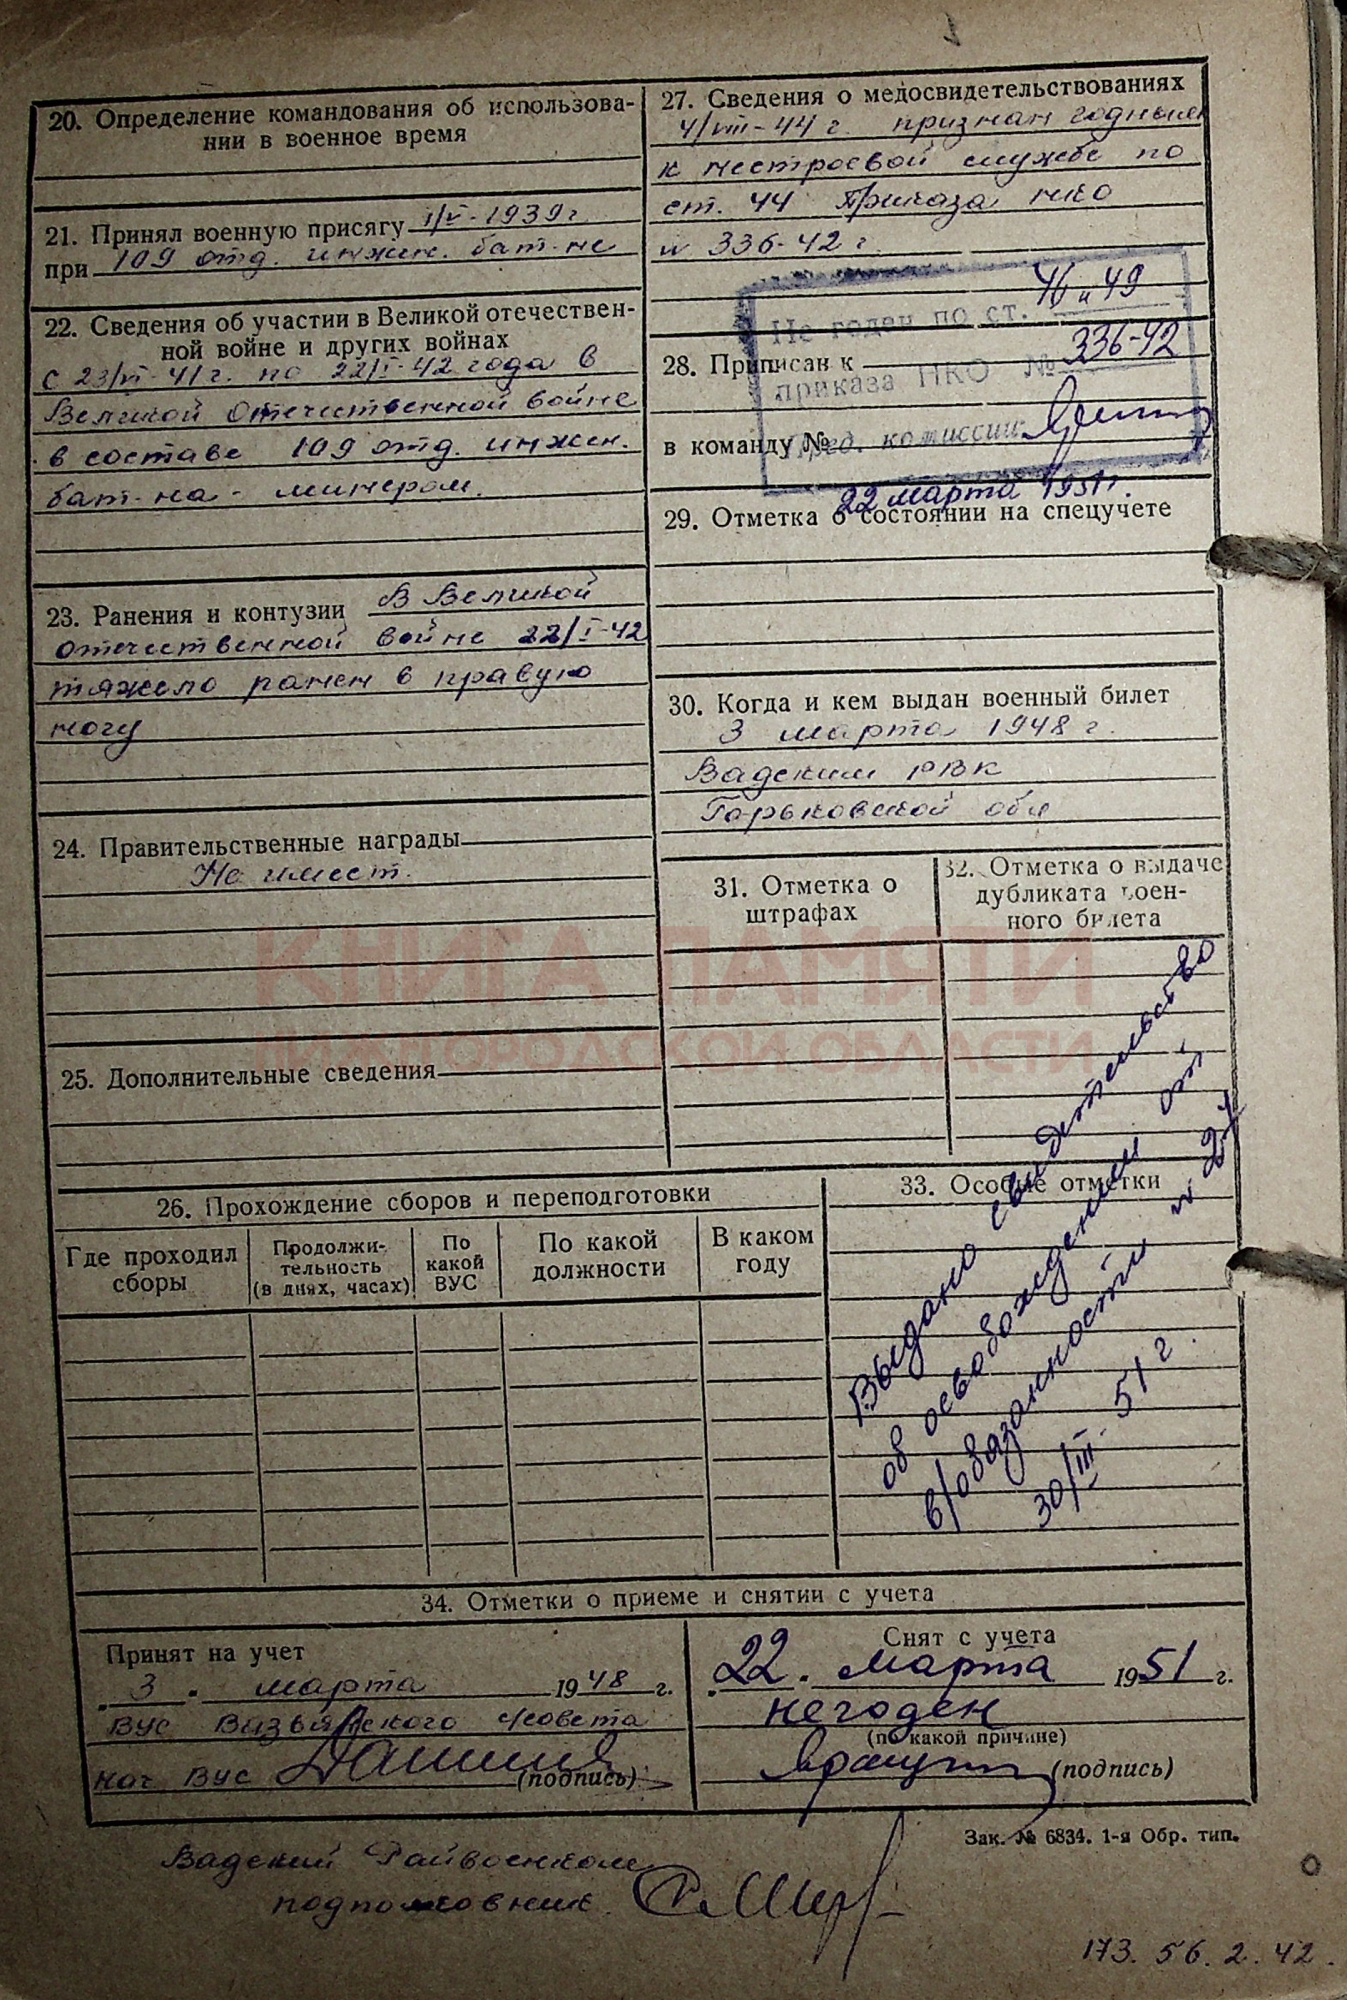 20. Определение командования об использова-
нии в военное время
21. Принял военную присягу 1/V-1939 г
при 109 отд. инжен. бат-не
22. Сведения об участии в Великой отечествен-
ной войне и других войнах
С 23/VI-41 г. по 22/I-42 года в
Великой Отечественной войне
в составе 109 отд. инжен.
бат-на - минером.
23. Ранения и контузии В Великой
отечественной войне 22/I-42
тяжело ранен в правую
ногу
24. Правительственные награды
Не имеет.
25. Дополнительные сведения
26. Прохождение сборов и переподготовки
Где проходил
сборы
Продолжи-
тельность
(в днях, часах)
По
какой
ВУС
По какой
должности
В каком
году
27. Сведения о медосвидетельствованиях
4/VIII-44 г. признан годным
к нестроевой службе по
ст. 44 Приказа НКО
№ 336-42 г
Не годен по ст. 46 и 49
приказа НКО № 336-42
Пред. комиссии
22 марта 1951 г.
28. Приписан к
в команду №
29. Отметка о состоянии на спецучете
30. Когда и кем выдан военный билет
3 марта 1948 г.
Вадским РВК
Горьковской обл
31. Отметка о
штрафах
32. Отметка о выдаче
дубликата воен-
ного билета
33. Особые отметки
Выдано свидетельство
об освобождении от
в/обязанности №
30/III-51 г.
34. Отметки о приеме и снятии с учета
Принят на учет
"3" марта 1948 г.
ВУС с/совета
нач ВУС (подпись)
Снят с учета
"22" марта 1951 г.
негоден
(по какой причине)
(подпись)
Зак. № 6834. 1-я Обр. тип.
Вадский Райвоенком
подполковник
173. 56. 2. 42.
КНИГА ПАМЯТИ
НИЖЕГОРОДСКОЙ ОБЛАСТИ